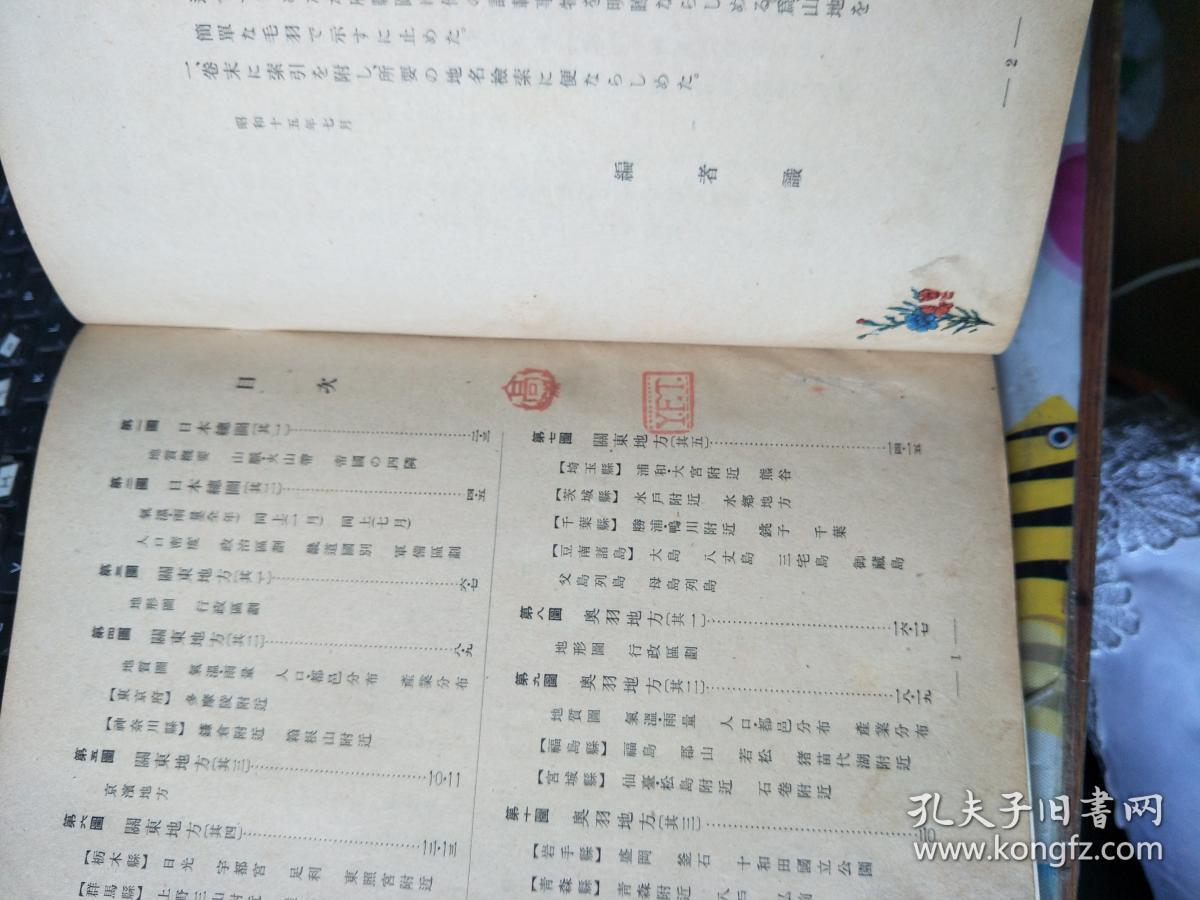 簡單な毛羽で示すに止めた。
一、卷末に索引を附し、所要の地名檢索に便ならしめた。
昭和十五年七月
編者識
— 2 —
目次
第一圖 日本總圖(其一)……二・三
地質概要 山脈火山帶 帝國の四隣
第二圖 日本總圖(其二)……四・五
氣溫・雨量全年 同上(一月) 同上(七月)
人口密度 政治區劃 畿道國別 軍備區劃
第三圖 關東地方(其一)……六・七
地形圖 行政區劃
第四圖 關東地方(其二)……八・九
地質圖 氣溫・雨量 人口・都邑分布 產業分布
【東京府】 多摩陵附近
【神奈川縣】 鎌倉附近 箱根山附近
第五圖 關東地方(其三)……一〇・一一
京濱地方
第六圖 關東地方(其四)……一二・一三
【栃木縣】 日光 宇都宮 足利 東照宮附近
【群馬縣】 上野三山附近
高
Y.E.T.
第七圖 關東地方(其五)……一四・一五
【埼玉縣】 浦和・大宮附近 熊谷
【茨城縣】 水戶附近 水鄉地方
【千葉縣】 勝浦・鴨川附近 銚子 千葉
【豆南諸島】 大島 八丈島 三宅島 御藏島
父島列島 母島列島
第八圖 奧羽地方(其一)……一六・一七
地形圖 行政區劃
第九圖 奧羽地方(其二)……一八・一九
地質圖 氣溫・雨量 人口・都邑分布 產業分布
【福島縣】 福島 郡山 若松 猪苗代湖附近
【宮城縣】 仙臺・松島附近 石卷附近
第十圖 奧羽地方(其三)……
【岩手縣】 盛岡 釜石 十和田國立公園
【青森縣】 青森附近
— 1 —
孔夫子旧书网
www.kongfz.com